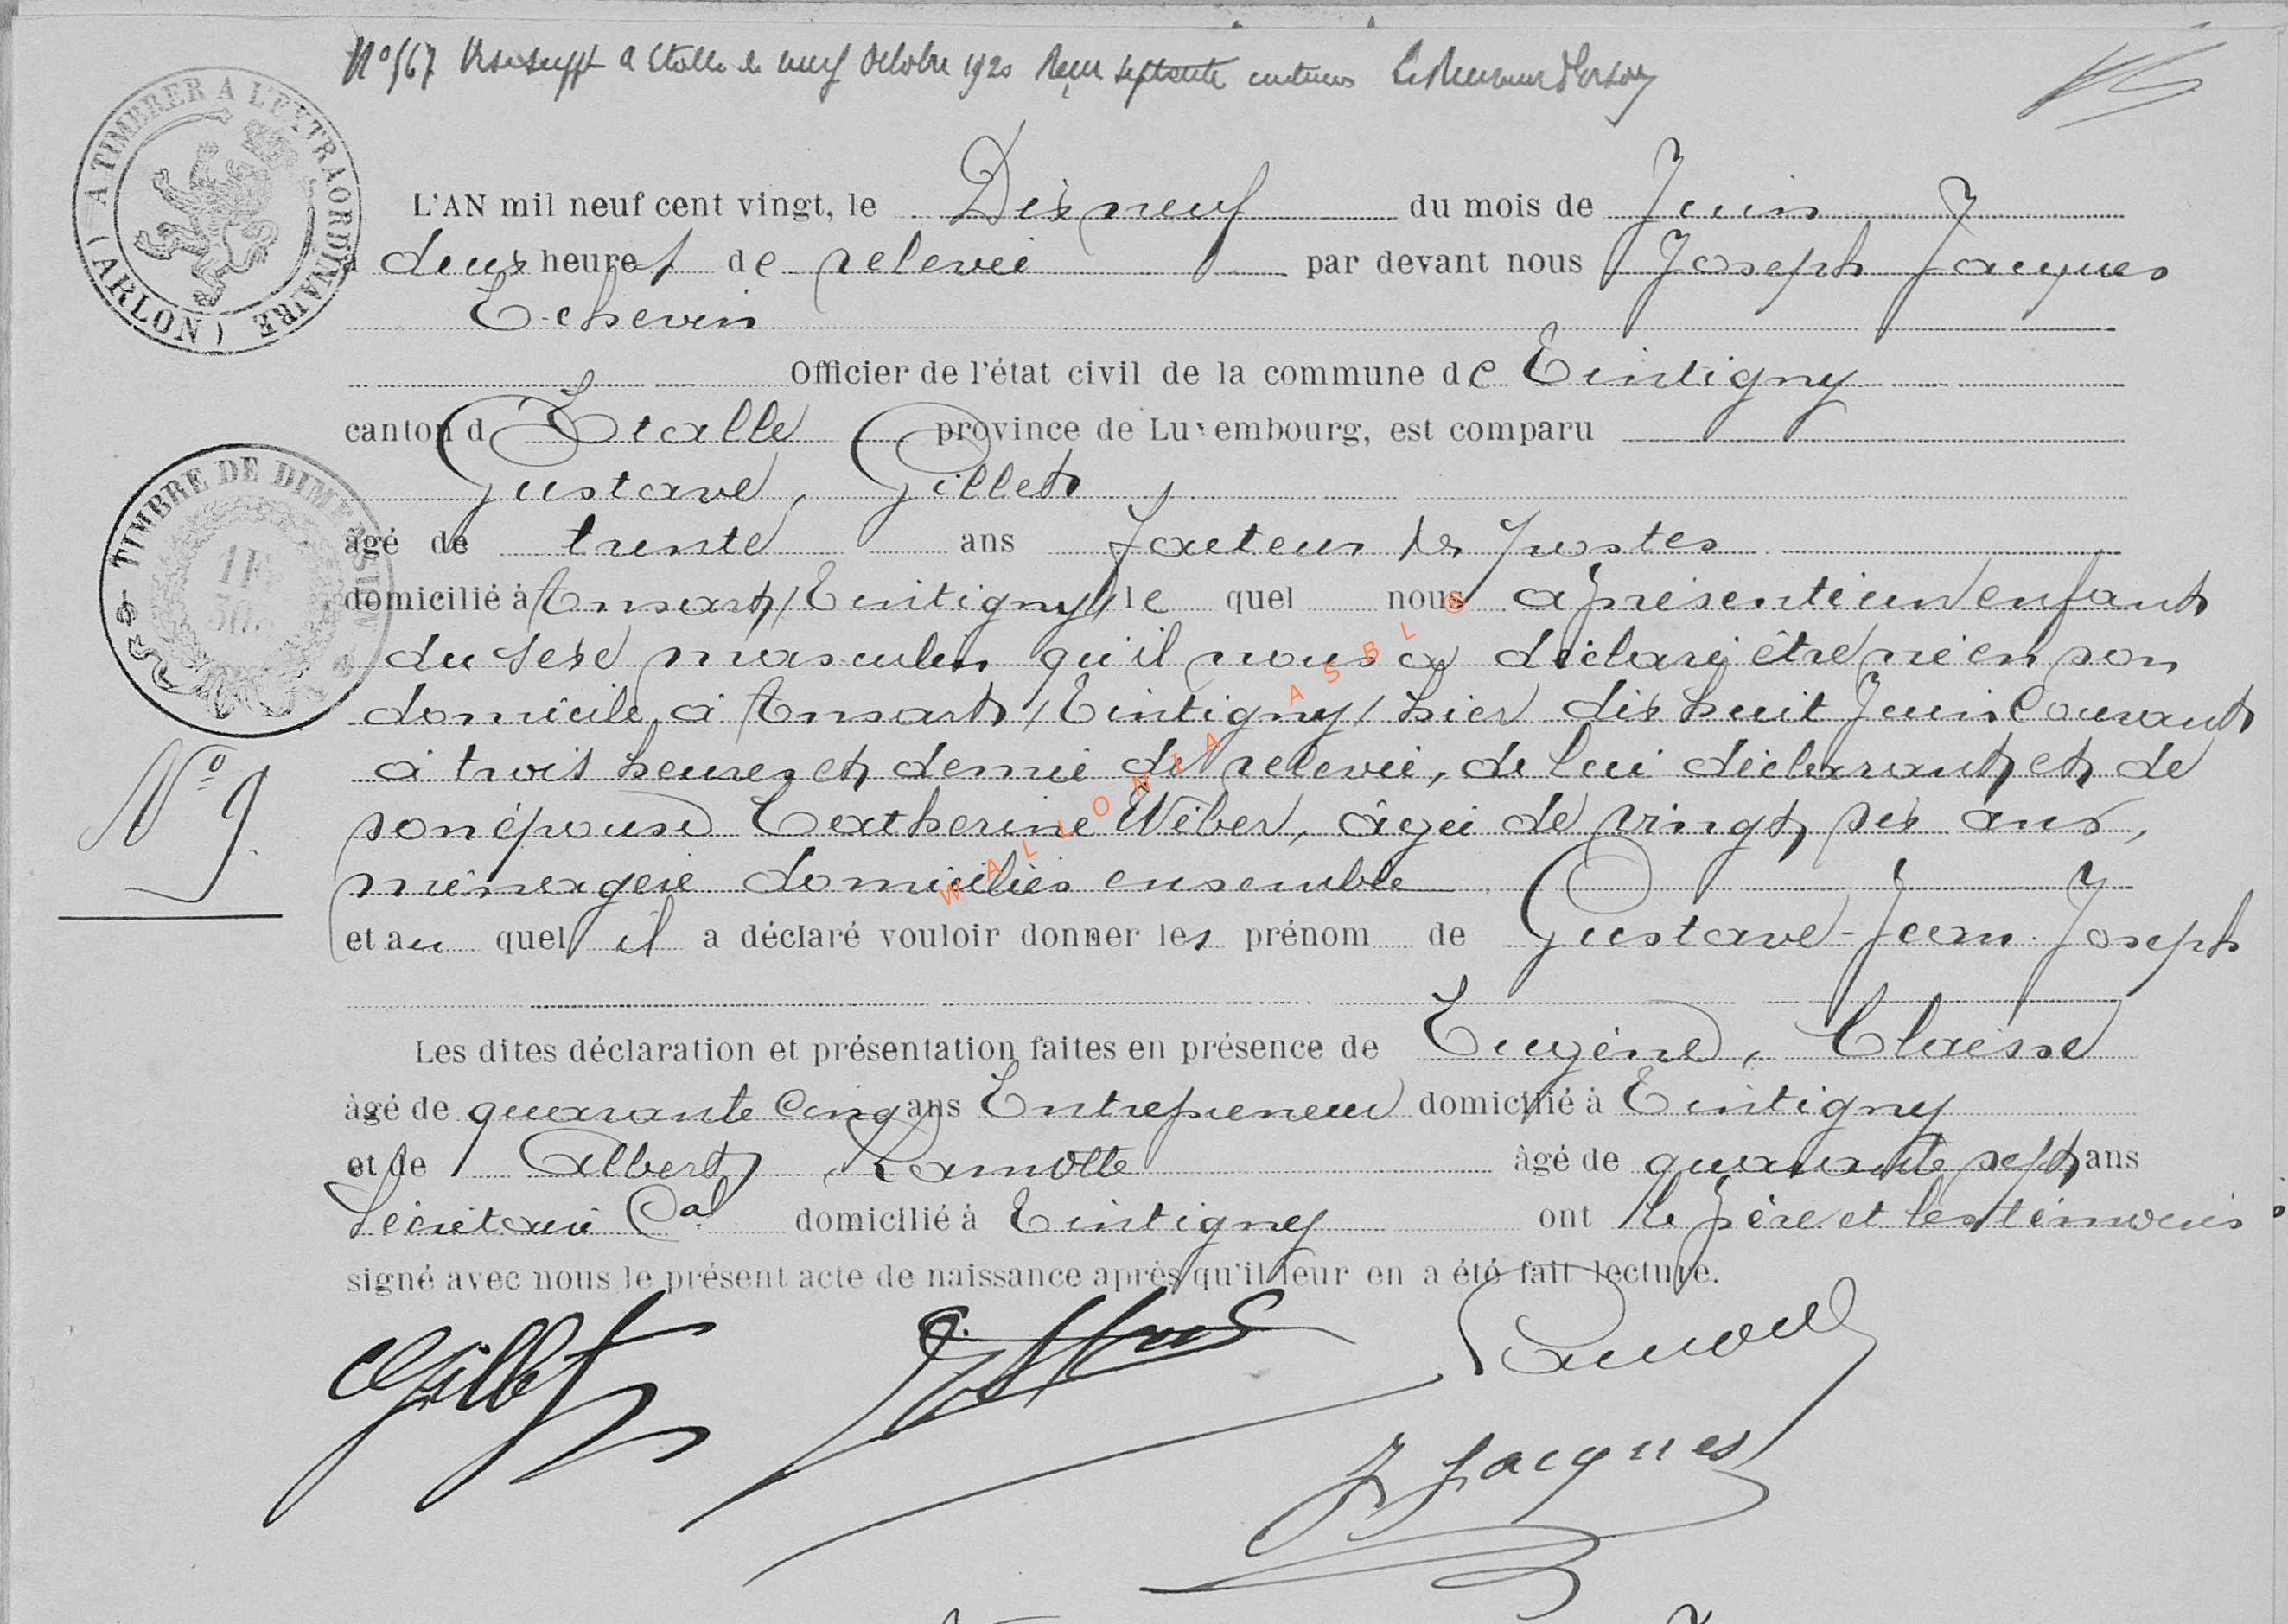 Nº 567 Visé suppt à Etalle le neuf Octobre 1920 Reçu septante centimes Le Receveur
A TIMBRER A L'EXTRAORDINAIRE (ARLON)
L'AN mil neuf cent vingt, le Dix neuf du mois de Juin
à deux heures de relevée par devant nous Joseph Jacques
Echevin
Officier de l'état civil de la commune de Tintigny
canton d'Etalle province de Luxembourg, est comparu
Gustave, Gillet
TIMBRE DE DIMENSION
1 F.
50 C.
âgé de trente ans facteur des postes
domicilié à Ansart /Tintigny/ lequel nous a présenté un enfant
du sexe masculin qu'il nous a déclaré être né en son
domicile, à Ansart /Tintigny/ hier dix huit Juin Courant
à trois heures et demie de relevée, de lui déclarant et de
son épouse Catherine Wéber, âgée de vingt six ans,
ménagère domiciliés ensemble
Nº 9
et au quel il a déclaré vouloir donner les prénom de Gustave-Jean-Joseph
Les dites déclaration et présentation faites en présence de Eugène, Claisse
âgé de quarante cinq ans Entrepreneur domicilié à Tintigny
et de Albert, Lamotte âgé de quarante sept ans
Secrétaire Cal domicilié à Tintigny ont le père et les témoins
signé avec nous le présent acte de naissance après qu'il leur en a été fait lecture.
Gillet
Lamotte
J Jacques
WALLONIA ASBL ©